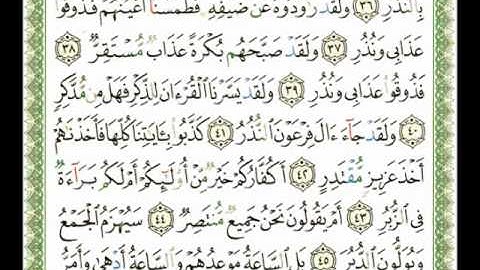 بِٱلنُّذُرِ ٣٦ وَلَقَدْ رَٰوَدُوهُ عَن ضَيْفِهِۦ فَطَمَسْنَآ أَعْيُنَهُمْ فَذُوقُوا۟
عَذَابِى وَنُذُرِ ٣٧ وَلَقَدْ صَبَّحَهُم بُكْرَةً عَذَابٌ مُّسْتَقِرٌّ ٣٨
فَذُوقُوا۟ عَذَابِى وَنُذُرِ ٣٩ وَلَقَدْ يَسَّرْنَا ٱلْقُرْءَانَ لِلذِّكْرِ فَهَلْ مِن مُّدَّكِرٍ
٤٠ وَلَقَدْ جَآءَ ءَالَ فِرْعَوْنَ ٱلنُّذُرُ ٤١ كَذَّبُوا۟ بِـَٔايَٰتِنَا كُلِّهَا فَأَخَذْنَٰهُمْ
أَخْذَ عَزِيزٍ مُّقْتَدِرٍ ٤٢ أَكُفَّارُكُمْ خَيْرٌ مِّنْ أُو۟لَٰٓئِكُمْ أَمْ لَكُم بَرَآءَةٌ
فِى ٱلزُّبُرِ ٤٣ أَمْ يَقُولُونَ نَحْنُ جَمِيعٌ مُّنتَصِرٌ ٤٤ سَيُهْزَمُ ٱلْجَمْعُ
وَيُوَلُّونَ ٱلدُّبُرَ ٤٥ بَلِ ٱلسَّاعَةُ مَوْعِدُهُمْ وَٱلسَّاعَةُ أَدْهَىٰ وَأَمَرُّ